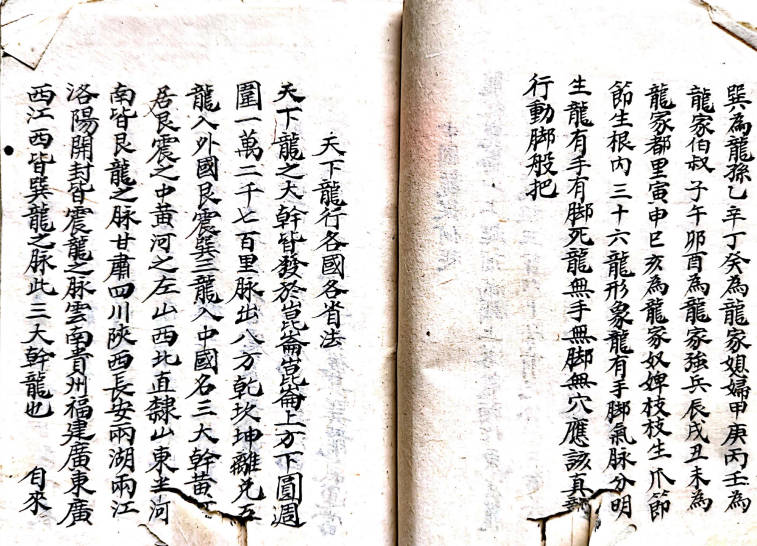 巽為龍孫乙辛丁癸為龍家媳婦甲庚丙壬為
龍家伯叔子午卯酉為龍家強兵辰戌丑未為
龍家都里寅申巳亥為龍家奴婢枝枝生爪節
節生根內三十六龍形象龍有手脚氣脉分明
生龍有手有脚死龍無手無脚無穴應該真龍
行動脚般把
天下龍行各國各省法
天下龍之大幹皆發於崑崙崑崙上方下圓週
圍一萬二千七百里脉出八方乾坎坤離兌五
龍入外國艮震巽三龍入中國名三大幹黃河
居艮震之中黃河之左山西北直隸山東尘河
南皆艮龍之脉甘肅四川陝西長安兩湖兩江
洛陽開封皆震龍之脉雲南貴州福建廣東廣
西江西皆巽龍之脉此三大幹龍也 自來